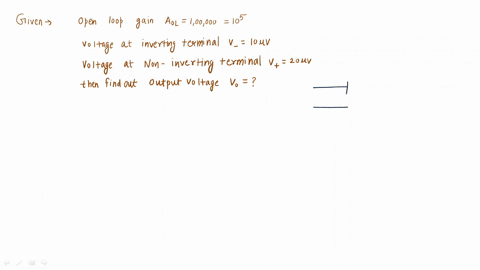 Given→ Open loop gain A_OL = 1,00,000 = 10^5
Voltage at inverting terminal V_- = 10μV
Voltage at Non-inverting terminal V_+ = 20μV
then find out output voltage V_o = ?